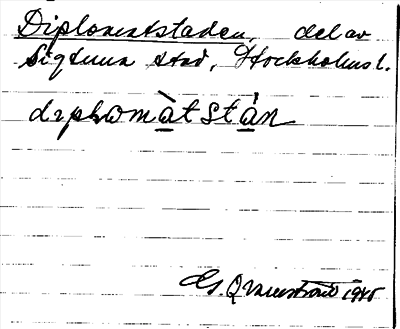 Diplomatstaden, del av
Sigtuna stad, Stockholms l.
diplomàtstàn
1945